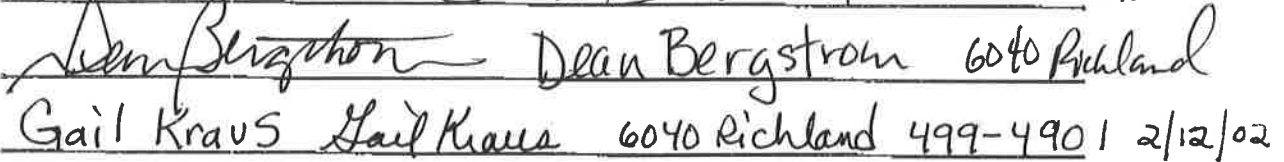 Dean Bergstrom Dean Bergstrom 6040 Richland
Gail Kraus Gail Kraus 6040 Richland 499-4901 2/12/02